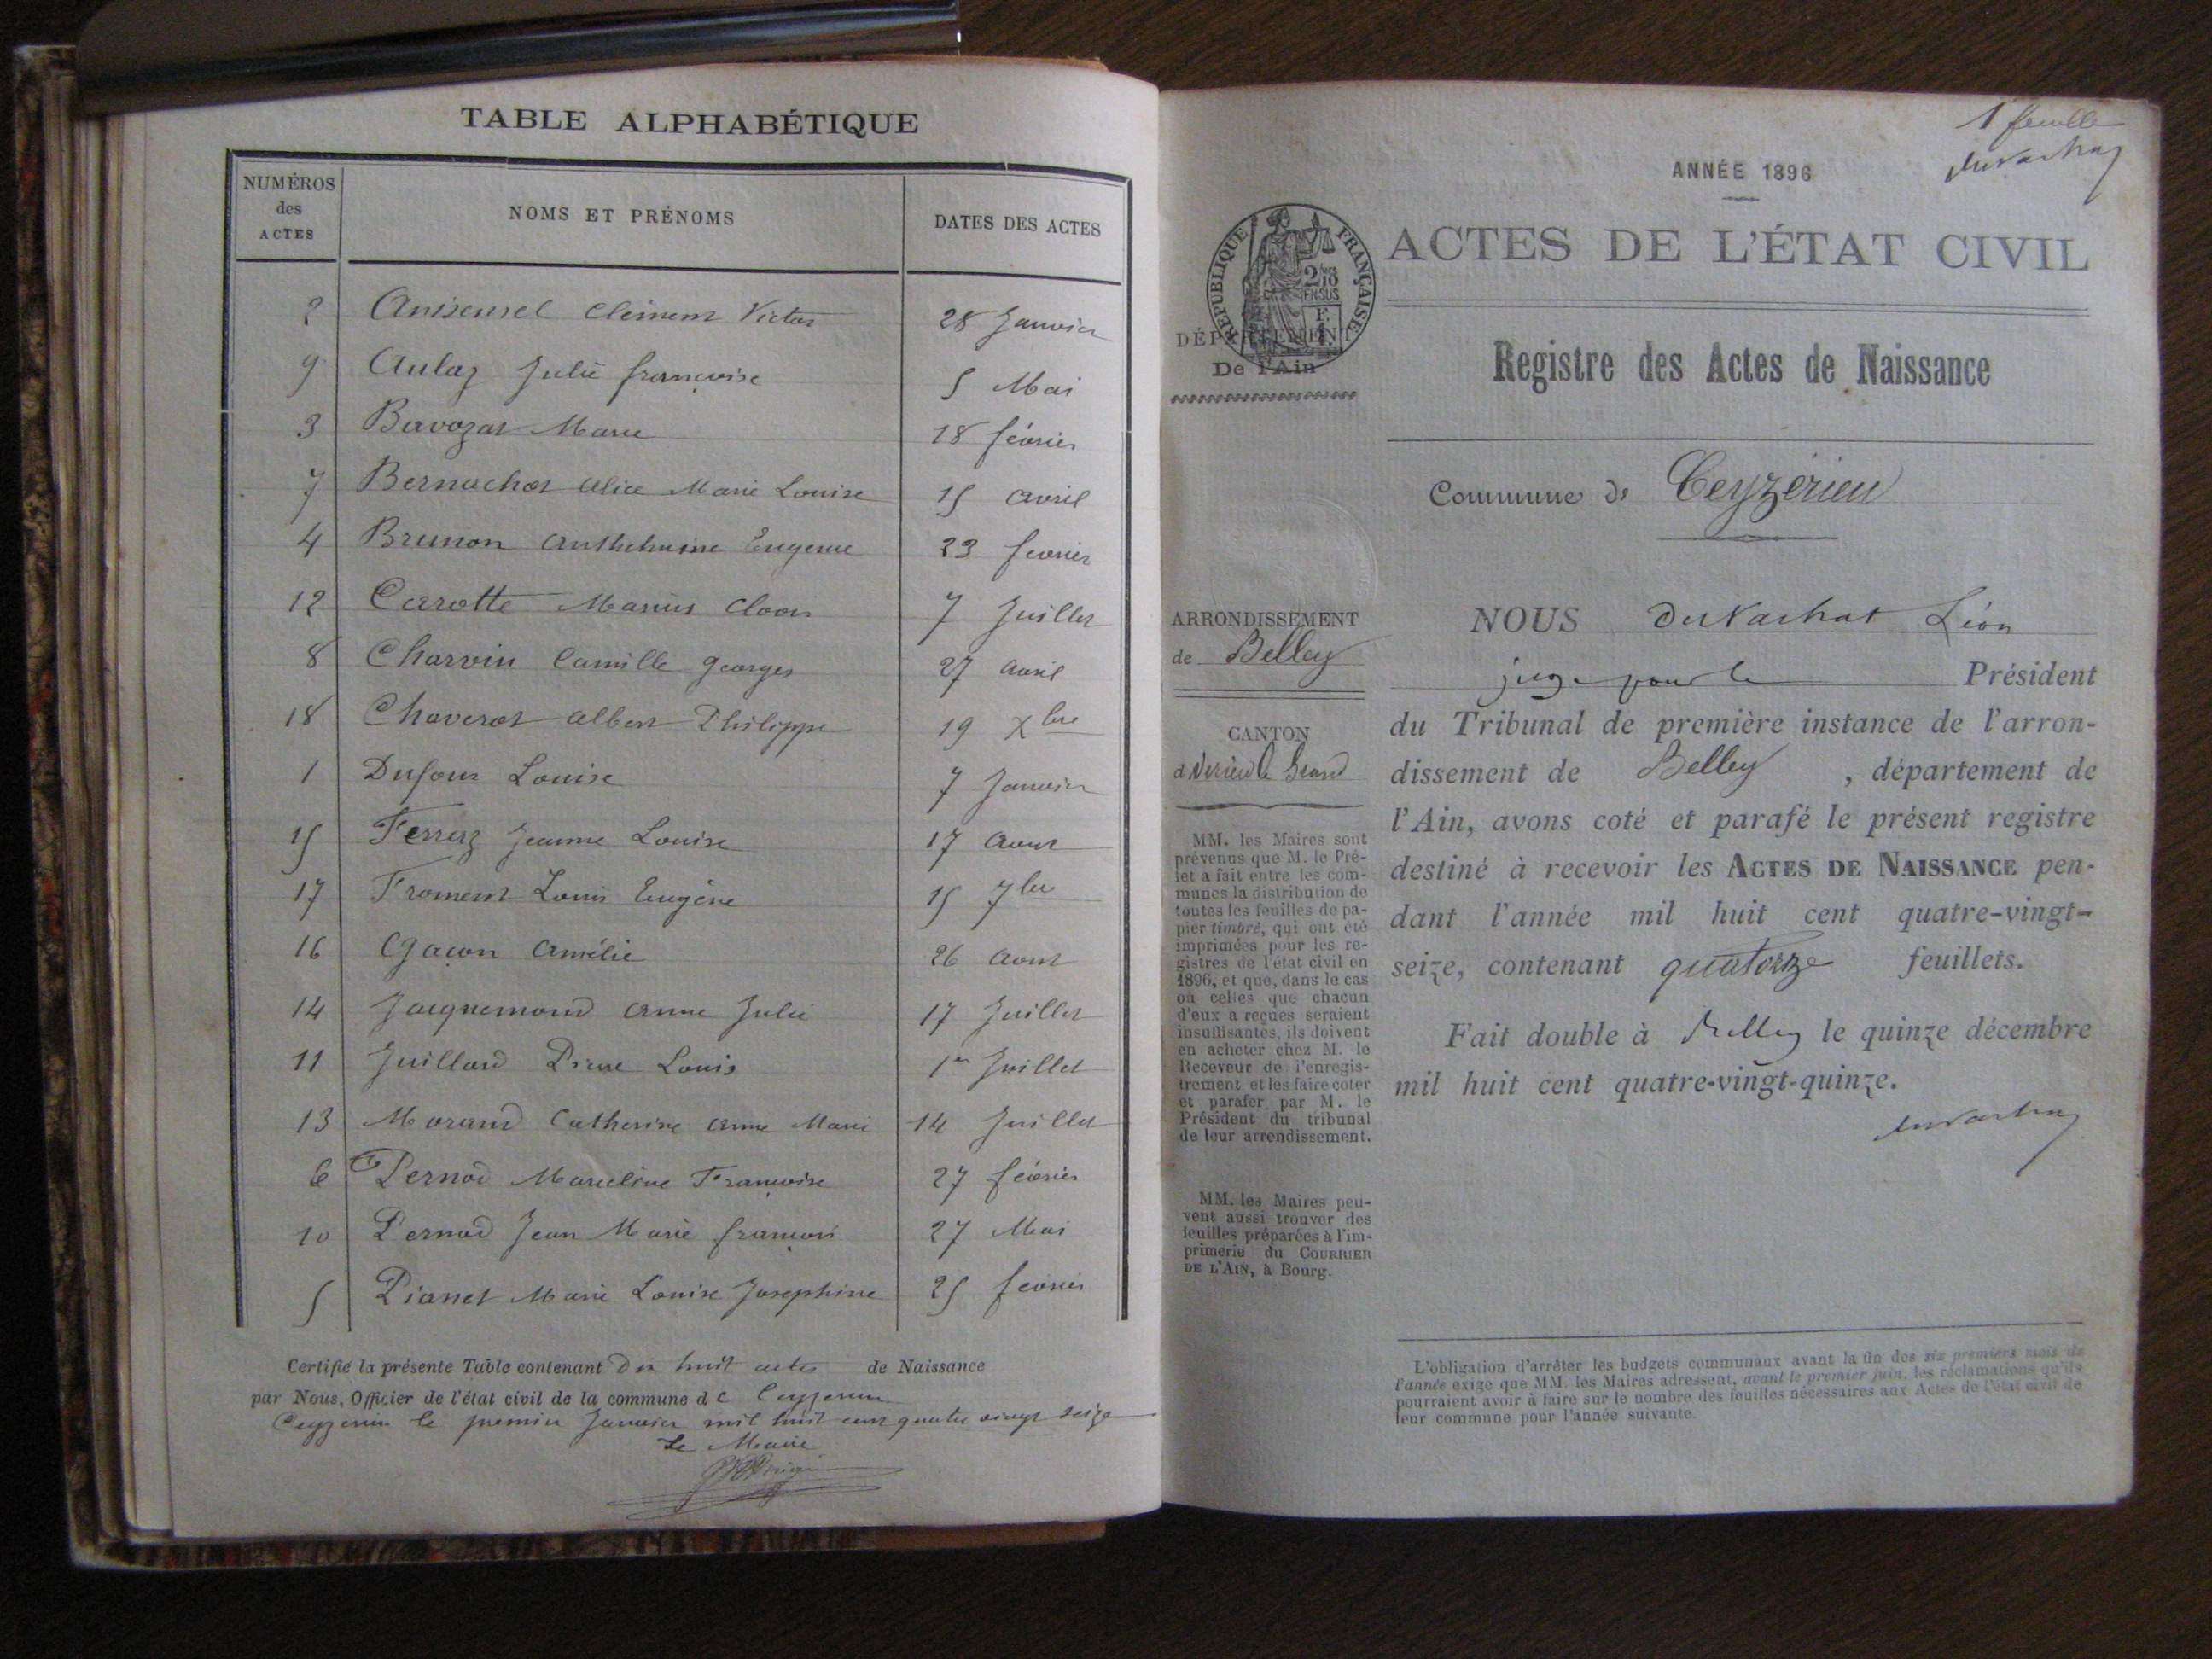 TABLE ALPHABÉTIQUE
NUMÉROS
des
ACTES
NOMS ET PRÉNOMS
DATES DES ACTES
2 Clément Victor 28 Janvier
9 Aulaz Julie françoise 5 Mai
3 Bavozat Marie 18 février
7 Bernachot alice Marie Louise 15 avril
4 Brunon anthelmine Eugenie 23 fevrier
12 Carotte Marius 7 Juillet
8 Charvin Camille georges 27 avril
18 Chaverot albert Philippe 19 Xbre
1 Dufour Louise 7 Janvier
15 Ferraz Jeanne Louise 17 aout
17 Froment Louis Eugène 15 7bre
16 Gacon amélie 26 aout
14 Jacquemond anne Julie 17 Juillet
11 Juilland Louis 1er Juillet
13 Morand Catherine anne Marie 14 Juillet
6 Pernod Marceline Françoise 27 février
10 Pernod Jean Marie françois 27 Mai
5 Pianet Marie Louise Josephine 25 fevrier
Certifié la présente Table contenant dix huit actes de Naissance
par Nous, Officier de l'état civil de la commune de Ceyzerieu
Ceyzerieu le premier Janvier mil huit cent quatre vingt seize
Le Maire
1 feuille
Duvachat
ANNÉE 1896
ACTES DE L'ÉTAT CIVIL
RÉPUBLIQUE FRANÇAISE
2/10
EN SUS
DÉPARTEMENT
De l'Ain
Registre des Actes de Naissance
Commune de Ceyzérieu
ARRONDISSEMENT
de Belley
CANTON
de Virieu le Grand
MM. les Maires sont
prévenus que M. le Pré-
fet a fait entre les com-
munes la distribution de
toutes les feuilles de pa-
pier timbré, qui ont été
imprimées pour les re-
gistres de l'état civil en
1896, et que, dans le cas
où celles que chacun
d'eux a reçues seraient
insuffisantes, ils doivent
en acheter chez M. le
Receveur de l'enregis-
trement et les faire coter
et parafer par M. le
Président du tribunal
de leur arrondissement.
MM. les Maires peu-
vent aussi trouver des
feuilles préparées à l'im-
primerie du COURRIER
DE L'AIN, à Bourg.
NOUS Duvachat Léon
juge pour le Président
du Tribunal de première instance de l'arron-
dissement de Belley , département de
l'Ain, avons coté et parafé le présent registre
destiné à recevoir les ACTES DE NAISSANCE pen-
dant l'année mil huit cent quatre-vingt-
seize, contenant quatorze feuillets.
Fait double à Belley le quinze décembre
mil huit cent quatre-vingt-quinze.
Duvachat
L'obligation d'arrêter les budgets communaux avant la fin des six premiers mois de
l'année exige que MM. les Maires adressent, avant le premier juin, les réclamations qu'ils
pourraient avoir à faire sur le nombre des feuilles nécessaires aux Actes de l'état civil de
leur commune pour l'année suivante.